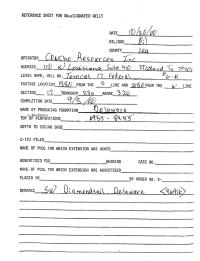 REFERENCE SHEET FOR UNDESIGNATED WELLS
DATE 10/20/00
OIL/GAS Oil
COUNTY Lea
OPERATOR Concho Resources Inc
ADDRESS 110 W Louisiana Suite 410 Midland Tx 79701
LEASE NAME, WELL NO. Tomcat 17 Federal #6-K
FOOTAGE LOCATION FROM THE S LINE AND FROM THE W LINE
SECTION 17 TOWNSHIP 23S RANGE 32E
COMPLETION DATE 9/5/00
NAME OF PRODUCING FORMATION Delaware
TOP OF PERFORATIONS
DEPTH TO CASING SHOE
C-123 FILED
NAME OF POOL FOR WHICH EXTENSION WAS ASKED
ADVERTISED FOR HEARING CASE NO.
NAME OF POOL FOR WHICH EXTENSION WAS ADVERTISED
PLACED IN BY ORDER NO. R-
REMARKS SW Diamondtail Delaware